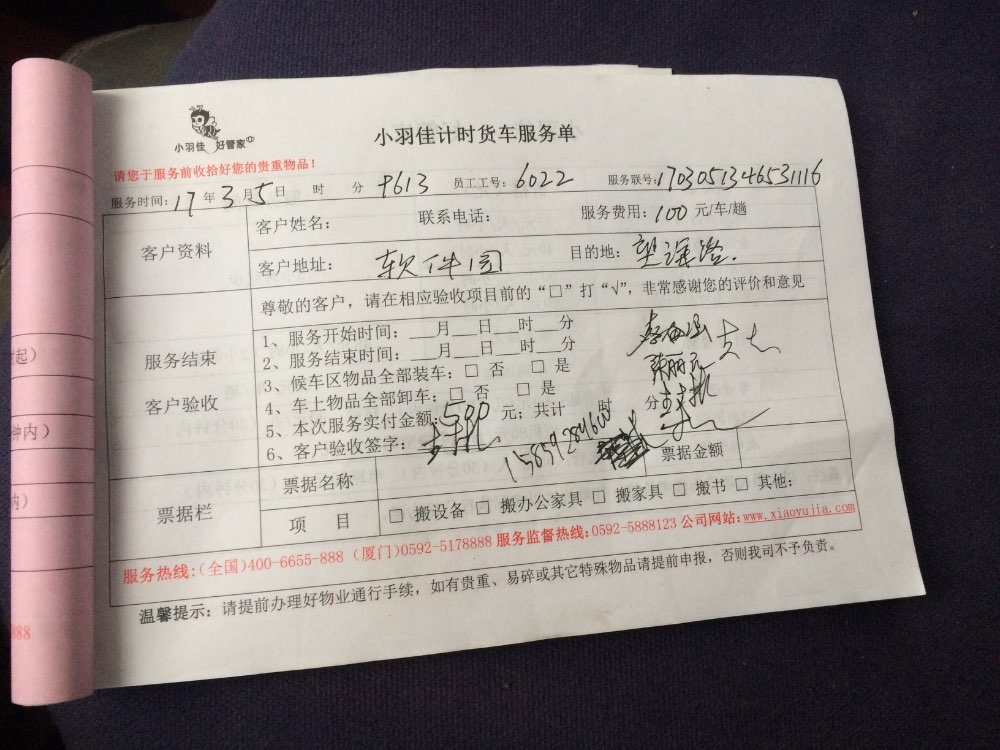 小羽佳 好管家
小羽佳计时货车服务单
请您于服务前收拾好您的贵重物品！
服务时间：17年3月5日 时 分 9613 员工工号：6022 服务联号：1703051346531116
客户资料
客户姓名： 联系电话： 服务费用：100元/车/趟
客户地址：软件园 目的地：
服务结束
客户验收
尊敬的客户，请在相应验收项目前的“□”打“√”，非常感谢您的评价和意见
1、服务开始时间：___月___日___时___分
2、服务结束时间：___月___日___时___分
3、候车区物品全部装车：□ 否 □ 是
4、车上物品全部卸车：□ 否 □ 是
5、本次服务实付金额：500元；共计 时 分
6、客户验收签字：
票据栏
票据名称 票据金额
项 目 □ 搬设备 □ 搬办公家具 □ 搬家具 □ 搬书 □ 其他：
服务热线：(全国)400-6655-888 (厦门)0592-5178888 服务监督热线：0592-5888123 公司网站：www.xiaoyujia.com
温馨提示：请提前办理好物业通行手续，如有贵重、易碎或其它特殊物品请提前申报，否则我司不予负责。
起）
钟内）
888